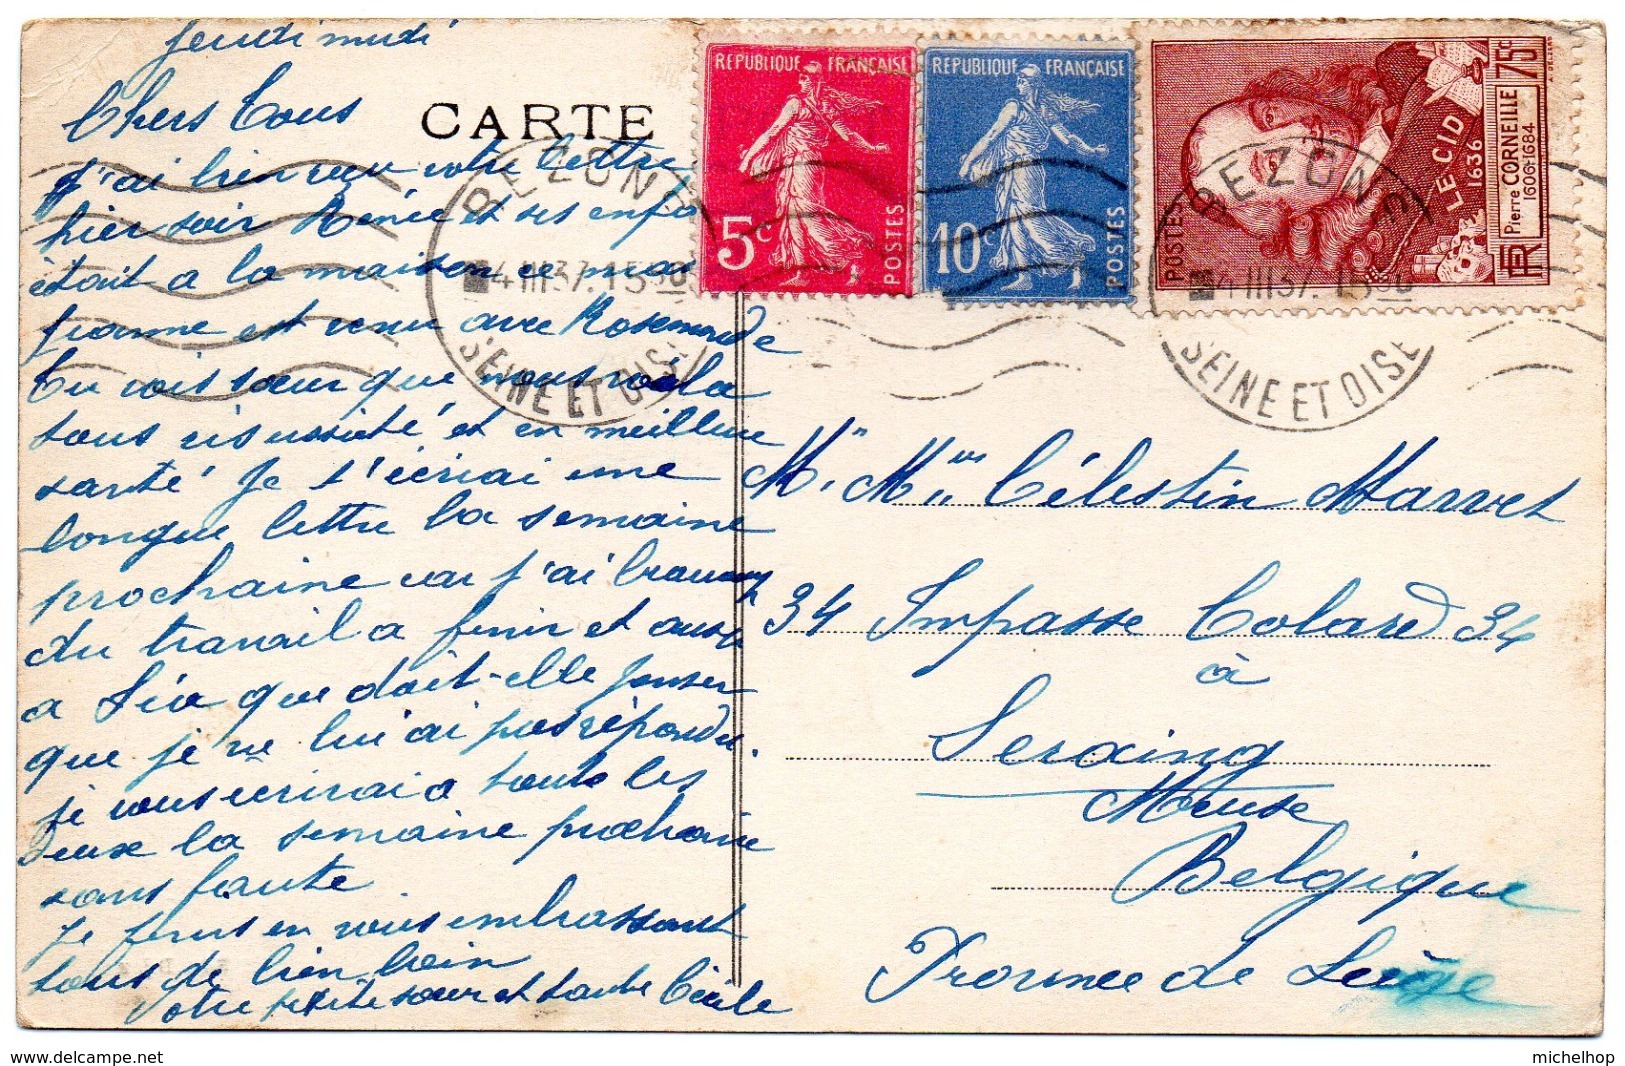 jeudi midi
Chers Tous
CARTE
j'ai bien reçu votre lettre
hier soir Renée et ses enfs
était a la maison ce
est venu avec Rosemonde
Tu vois sœur que nous voila
tous et en meilleure
santé Je t'écrirai une
longue lettre la semaine
prochaine car j'ai beaucoup
du travail a finir et aussi
a Léa que doit-elle penser
que je ne lui ai pas répondu.
je vous écrirai a toute les
deux la semaine prochaine
sans faute
je finis en vous embrassant
tous de bien loin
Votre petite sœur et tante Cécile
REPUBLIQUE FRANÇAISE
5c
POSTES
REPUBLIQUE FRANÇAISE
10c
POSTES
POSTES
LE CID
1636
Pierre CORNEILLE
1606-1684
75c
RF
BEZONS
4 III 37. 15 30
SEINE ET OISE
BEZONS
4 III 37. 15 30
SEINE ET OISE
Mr Mme Célestin
34 Impasse Colard 34
à
Seraing
Meuse
Belgique
Province de Liège
www.delcampe.net
michelhop